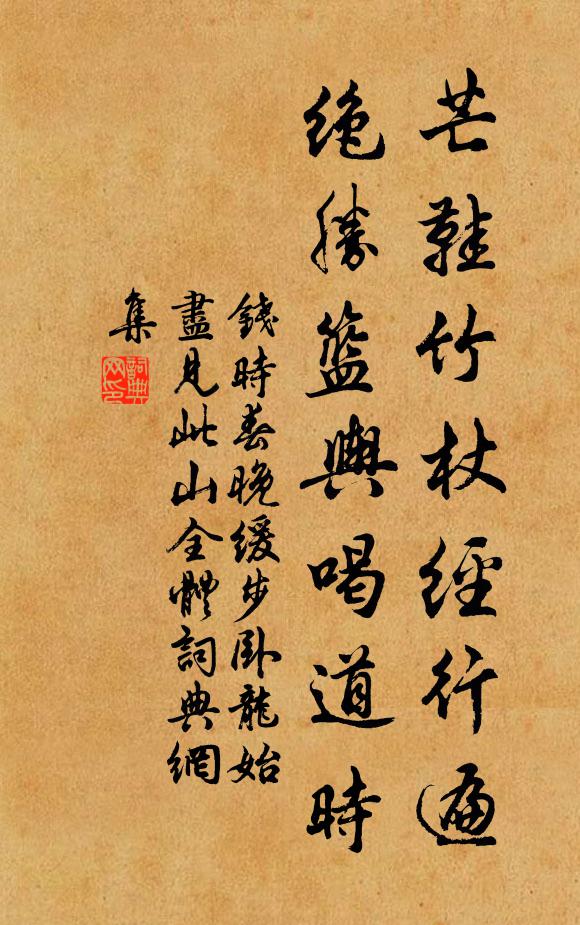 芒鞋竹杖經行遍
絶勝籃輿喝道時
錢時春晚緩步卧龍始
盡見此山全體詞典網
集
詞典
网印